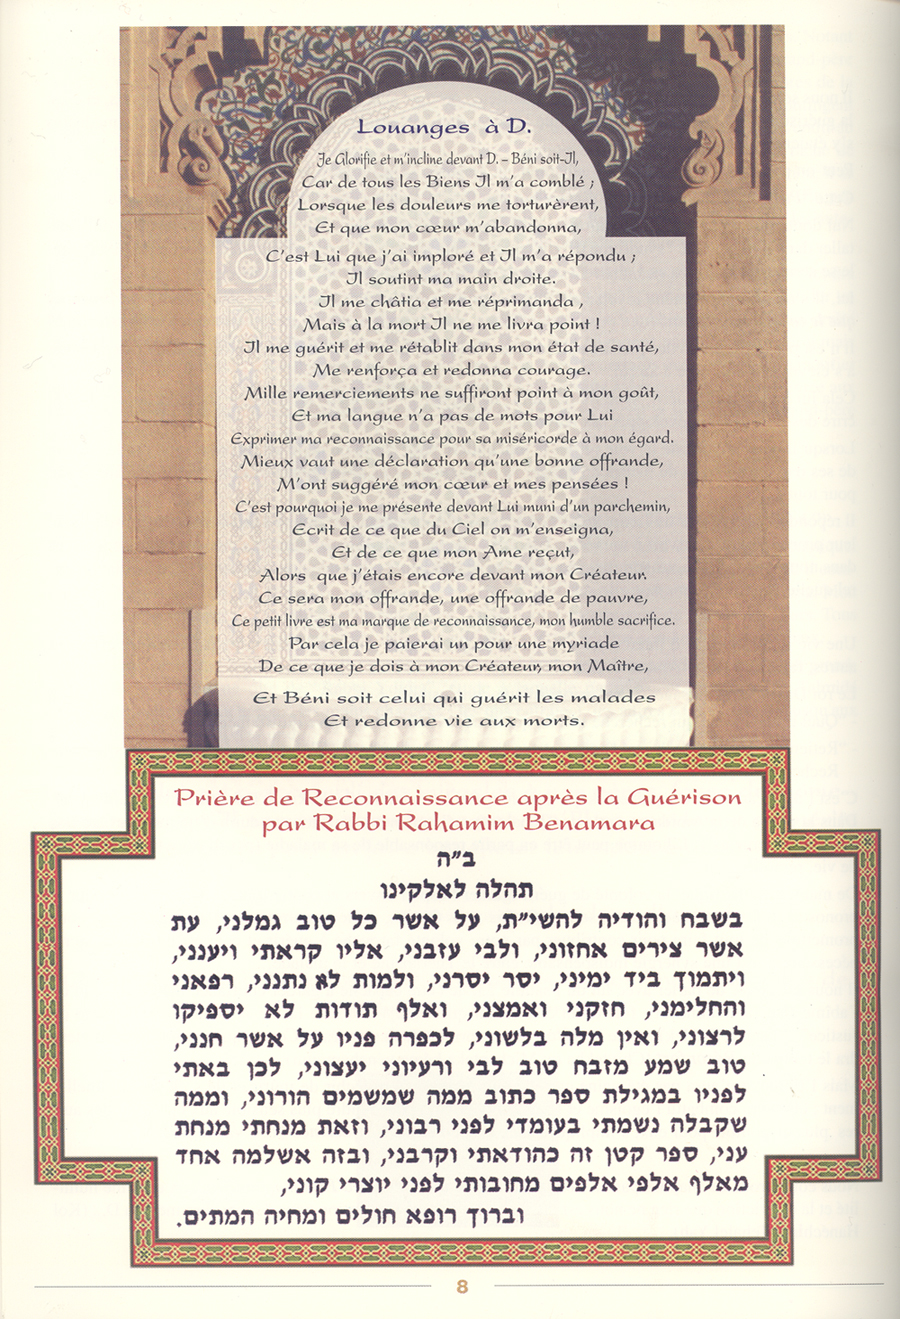 Louanges à D.
Je Glorifie et m'incline devant D. – Béni soit-Il,
Car de tous les Biens Il m'a comblé ;
Lorsque les douleurs me torturèrent,
Et que mon cœur m'abandonna,
C'est Lui que j'ai imploré et Il m'a répondu ;
Il soutint ma main droite.
Il me châtia et me réprimanda ,
Mais à la mort Il ne me livra point !
Il me guérit et me rétablit dans mon état de santé,
Me renforça et redonna courage.
Mille remerciements ne suffiront point à mon goût,
Et ma langue n'a pas de mots pour Lui
Exprimer ma reconnaissance pour sa miséricorde à mon égard.
Mieux vaut une déclaration qu'une bonne offrande,
M'ont suggéré mon cœur et mes pensées !
C'est pourquoi je me présente devant Lui muni d'un parchemin,
Ecrit de ce que du Ciel on m'enseigna,
Et de ce que mon Ame reçut,
Alors que j'étais encore devant mon Créateur.
Ce sera mon offrande, une offrande de pauvre,
Ce petit livre est ma marque de reconnaissance, mon humble sacrifice.
Par cela je paierai un pour une myriade
De ce que je dois à mon Créateur, mon Maître,
Et Béni soit celui qui guérit les malades
Et redonne vie aux morts.
Prière de Reconnaissance après la Guérison
par Rabbi Rahamim Benamara
ב״ה
תהלה לאלקינו
בשבח והודיה להשי״ת, על אשר כל טוב גמלני, עת
אשר צירים אחזוני, ולבי עזבני, אליו קראתי ויענני,
ויתמוך ביד ימיני, יסר יסרני, ולמות לא נתנני, רפאני
והחלימני, חזקני ואמצני, ואלף תודות לא יספיקו
לרצוני, ואין מלה בלשוני, לכפרה פניו על אשר חנני,
טוב שמע מזבח טוב לבי ורעיוני יעצוני, לכן באתי
לפניו במגילת ספר כתוב ממה שמשמים הורוני, וממה
שקבלה נשמתי בעומדי לפני רבוני, וזאת מנחתי מנחת
עני, ספר קטן זה כהודאתי וקרבני, ובזה אשלמה אחד
מאלף אלפי אלפים מחובותי לפני יוצרי קוני,
וברוך רופא חולים ומחיה המתים.
8